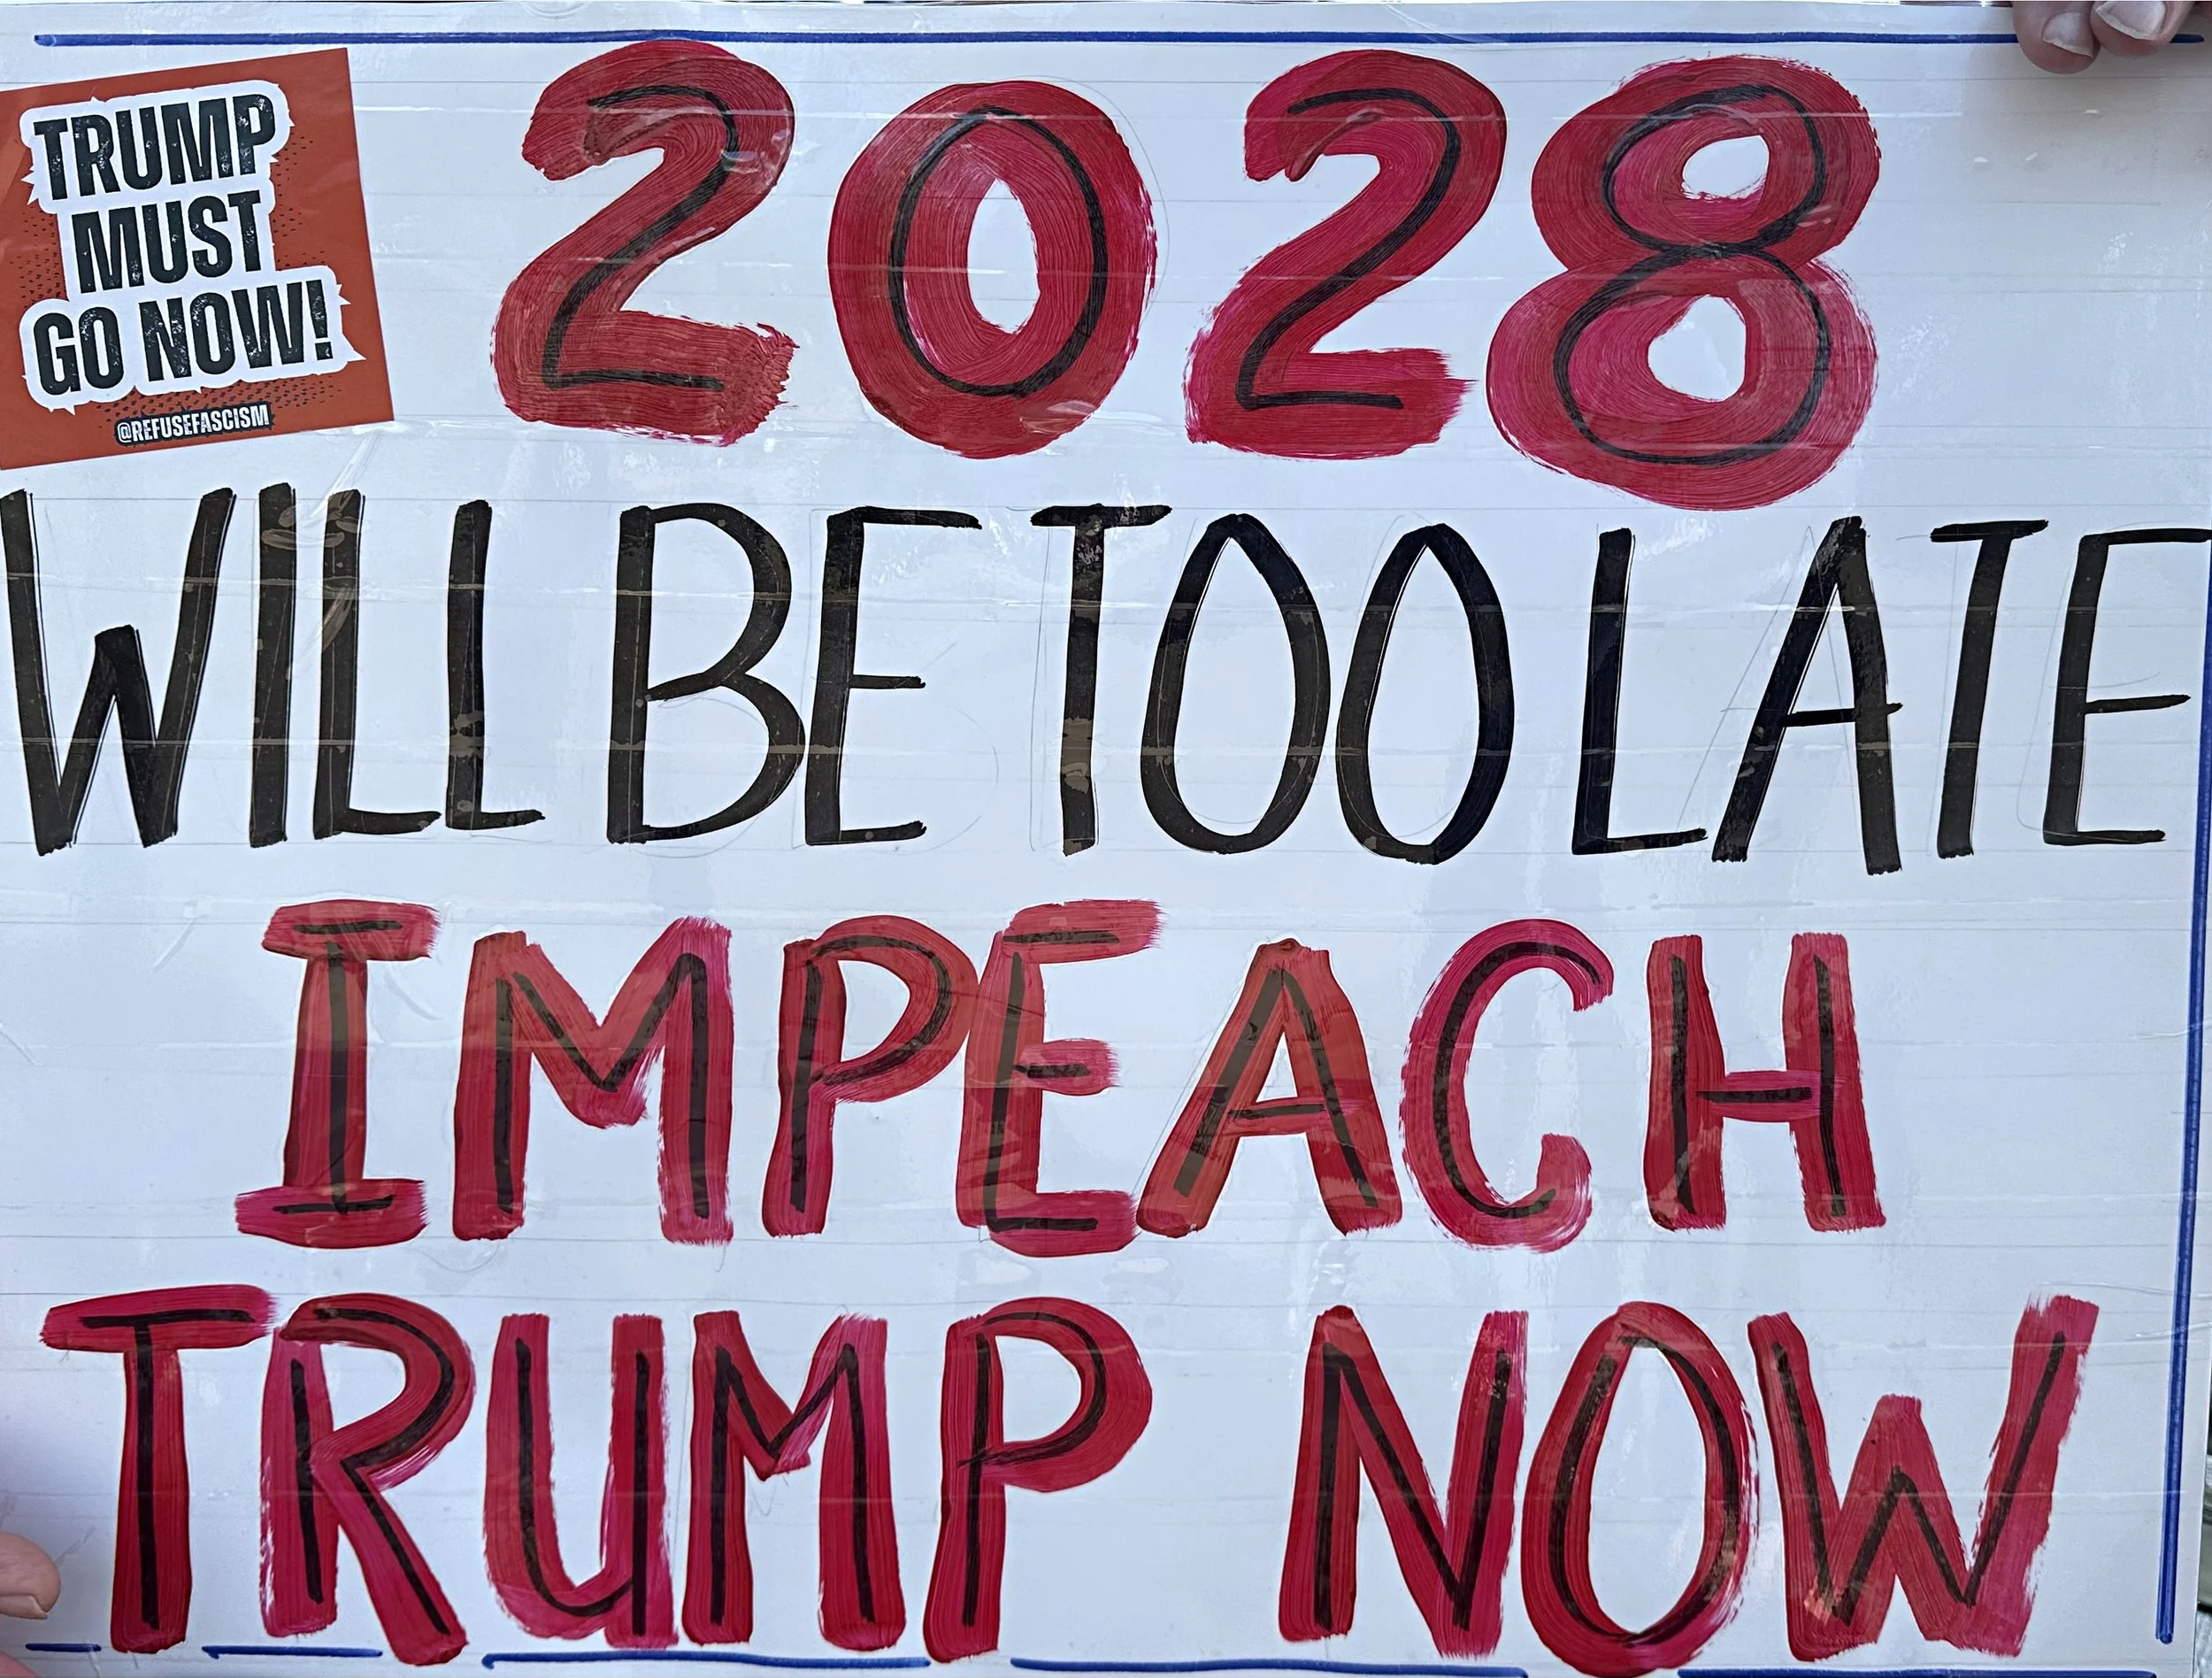 TRUMP
MUST
GO NOW!
@REFUSEFASCISM
2028
WILL BE TOO LATE
IMPEACH
TRUMP NOW